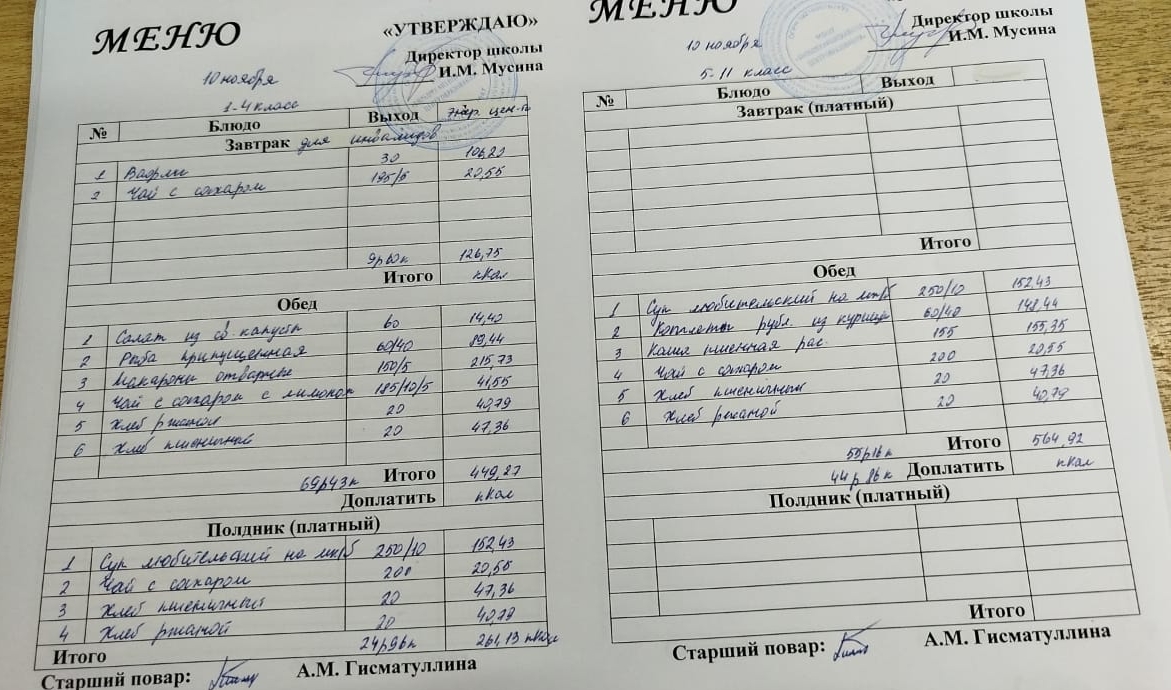 МЕНЮ
«УТВЕРЖДАЮ»
Директор школы
И.М. Мусина
10 ноября
1-4 класс
№ Блюдо Выход Энер. цен-ть
Завтрак для инвалидов
1 Вафли 30 106,20
2 Чай с сахаром 195/5 20,55
9р60к 126,75
Итого кКал
Обед
1 Салат из св. капусты 60 14,40
2 Рыба припущенная 60/40 89,44
3 Макароны отварные 150/5 215,73
4 Чай с сахаром с лимоном 185/10/5 41,55
5 Хлеб ржаной 20 40,79
6 Хлеб пшеничный 20 47,36
69р43к Итого 449,27
Доплатить кКал
Полдник (платный)
1 Суп любительский на мк/б 250/10 152,43
2 Чай с сахаром 200 20,55
3 Хлеб пшеничный 20 47,36
4 Хлеб ржаной 20 40,79
Итого 24р96к 261,13 кКал
Старший повар: А.М. Гисматуллина
МЕНЮ
Директор школы
И.М. Мусина
10 ноября
5-11 класс
№ Блюдо Выход
Завтрак (платный)
Итого
Обед
1 Суп любительский на мк/б 250/10 152,43
2 Котлеты рубл. из курицы 60/40 148,44
3 Каша пшенная рас. 155 155,35
4 Чай с сахаром 200 20,55
5 Хлеб пшеничный 20 47,36
6 Хлеб ржаной 20 40,79
55р16к Итого 564,92
44р86к Доплатить кКал
Полдник (платный)
Итого
Старший повар: А.М. Гисматуллина